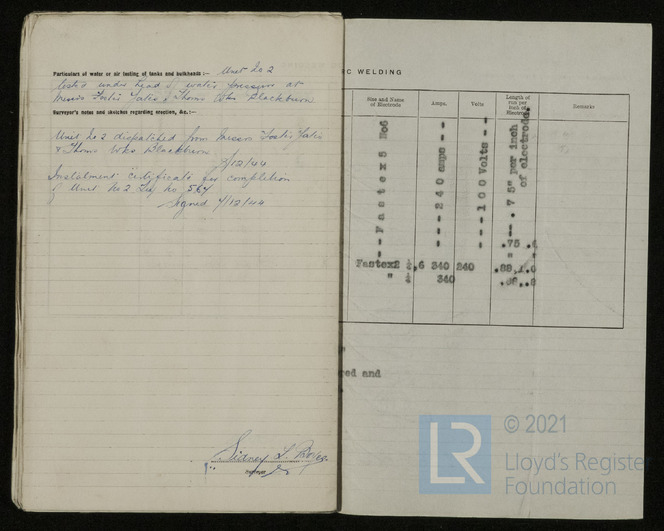 Particulars of water or air testing of tanks and bulkheads :— Unit No 2
tested under head of water pressure at
Messrs Foster Yates & Thoms Wks Blackburn
Surveyor's notes and sketches regarding erection, &c.:—
Unit No 2 dispatched from Messrs Foster Yates
& Thoms Wks Blackburn
/12/44
Instalment certificate for completion
of Unit No 2 No 564
Signed 4/12/44
Sidney
IC WELDING
Size and Name of Electrode
Amps.
Volts
Length of run per Inch of Electrode
Remarks
Fastex5 No6
240 amps
100 Volts
.75" per inch of electrode.
.75
Fastex2 .6 340 240
" 340
red and
LR
© 2021
Lloyd's Register
Foundation